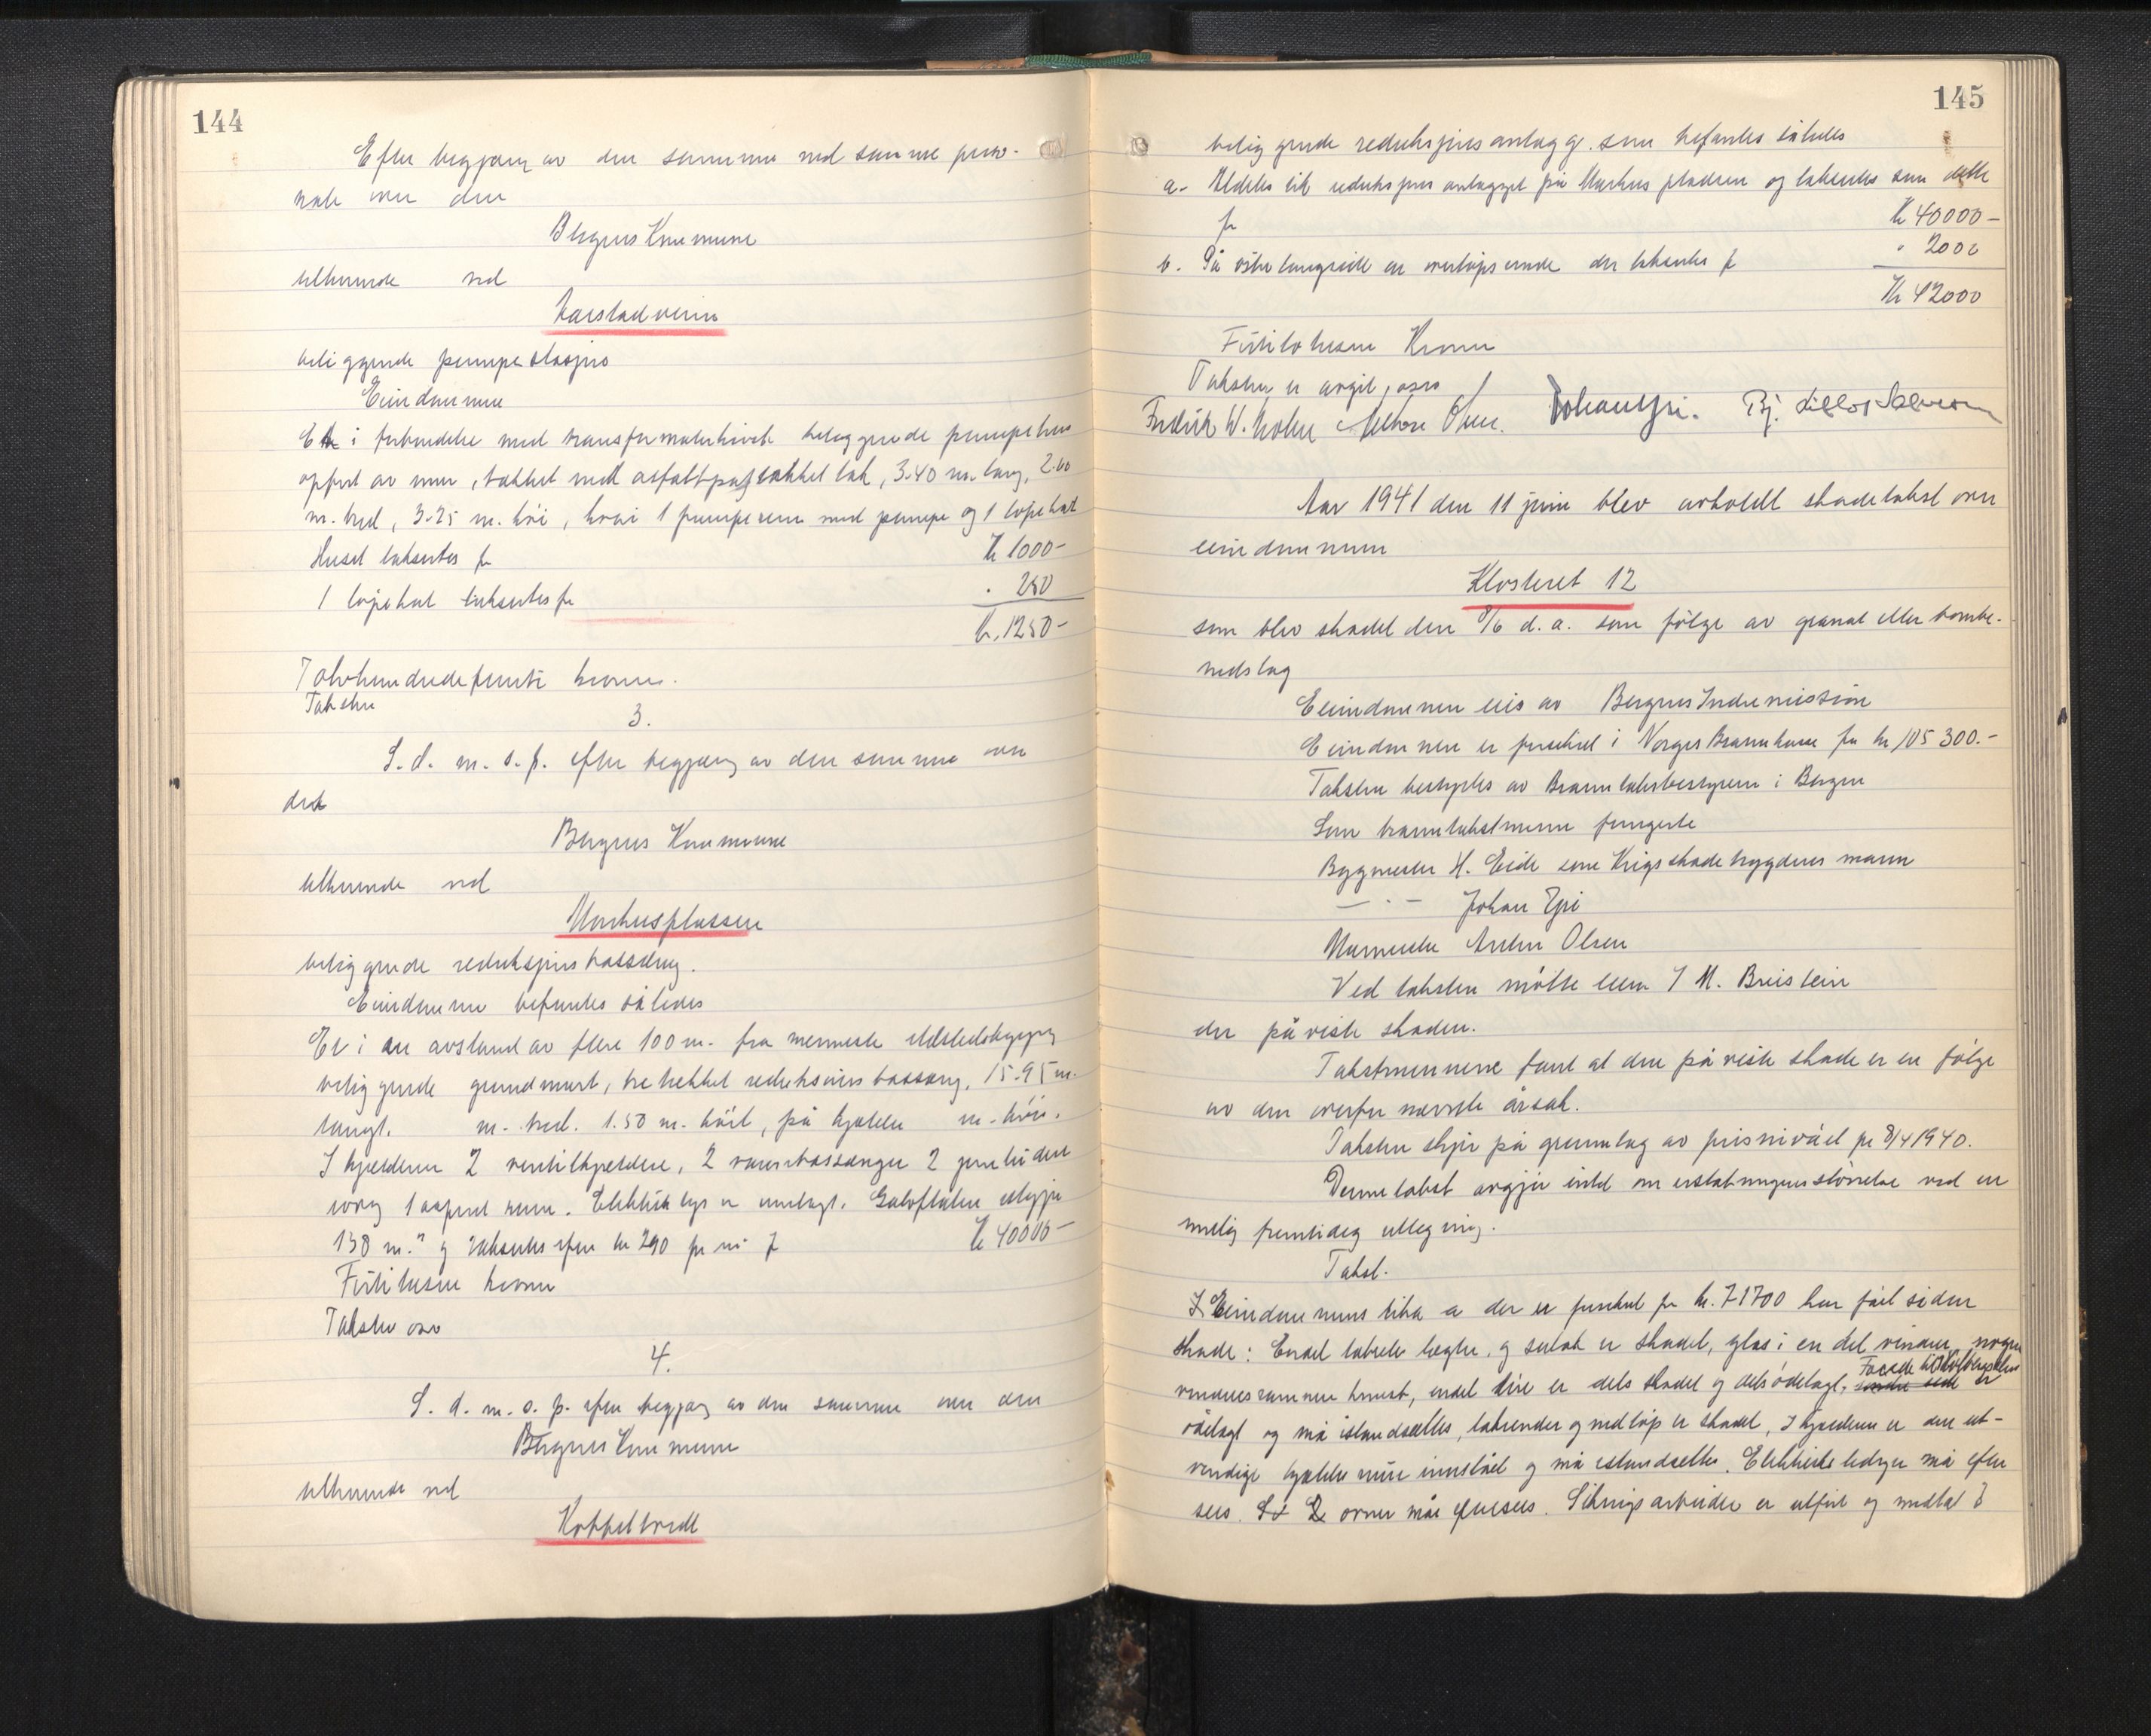 144
Efter begjæring av den samme med samme person-
nale over den
Bergens Kommune
tilhørende ved
Harstadveien
beliggende pumpestasjon
Eiendommen
Er i forbindelse med transformatorkiosk beliggende pumpehus
opført av mur, tækket med asfaltpap tækket tak, 3.40 m. lang, 2.60
m. bred, 3.25 m. høi, hvori 1 pumperum med pumpe og 1 løpekat
Huset takseres for Kr 1000-
1 løpekat takseres for " 250
Kr. 1250-
Tolvhundredefemti kroner.
Taksten
3.
S. d. m. s. p. efter begjæring av den samme over
den
Bergens Kommune
tilhørende ved
Markusplassen
beliggende reduksjonsbasseng.
Eiendommen befantes således
Er i en avstand av flere 100 m. fra nærmeste ildstedsbygning
beliggende grundmurt, tækket reduksions basseng, 15.95 m.
langt. m. bred. 1.50 m. høit, på kjelder m. høi.
I kjelderen 2 ventilkjeldere, 2 vannbassenger 2
1 rum. Elektrisk lys er innlagt. Golvflaten utgjør
138 m.² og takseres efter kr 290 pr m² for Kr 40000-
Firtitusen kroner
Taksten osv
4.
S. d. m. s. p. efter begjæring av den samme over den
Bergens Kommune
tilhørende ved
Hoppeltvedt
145
beliggende reduksjonsanlegg, som befantes således
a- Aldeles lik reduksjons anlegget på Markus pladsen og takseres som dette
for Kr 40000-
b. På østre langside en overløpsrende der takseres for " 2000
Kr 42000
Førtito tusen Kroner
Taksten er avgit, osv
Fredrik W. Holm Anthon Olsen. Johan Gjri. Bj. Lillos Salvesen
Aar 1941 den 11 juni blev avholdt skadetakst over
eiendommen
Klosteret 12
som blev skadet den 8/6 d. a. som følge av granat eller bombe-
nedslag
Eiendommen eies av Bergens Indremission
Eiendommen er forsikret i Norges Brannkasse for kr 105 300.-
Taksten bestyrtes av Branntakstbestyreren i Bergen
Som branntakstmenn fungerte
Byggmester H. Eide som Krigsskadetrygdens mann
— " — Johan Gjri
Murmester Anthon Olsen
Ved taksten møtte eieren I M. Breistein
der påviste skaden.
Takstmennene fant at den påviste skade er en følge
av den overfor nævnte årsak.
Taksten skjer på grunnlag av prisnivået pr 8/4 1940.
Denne takst avgjør intet om erstatningens størrelse ved en
mulig fremtidig utlegning.
Takst.
Eiendommens litra a der er forsikret for kr. 71700 har fåt siden
skade: Endel taksten lægter og sutak er skadet, glas i en del vinduer, nogen
vindues rammer knust, endel dører er dels skadet og dels ødelagt. Facade til
ødelagt og må istandsettes, takrender og nedløp er skadet, I kjelderen er den ut-
vendige kjelder mur innslåt og må istandsettes. Elektriske ledninger må efter
sees. 2 ovner må eftersees. Sikringsarbeider er utført og medtat i